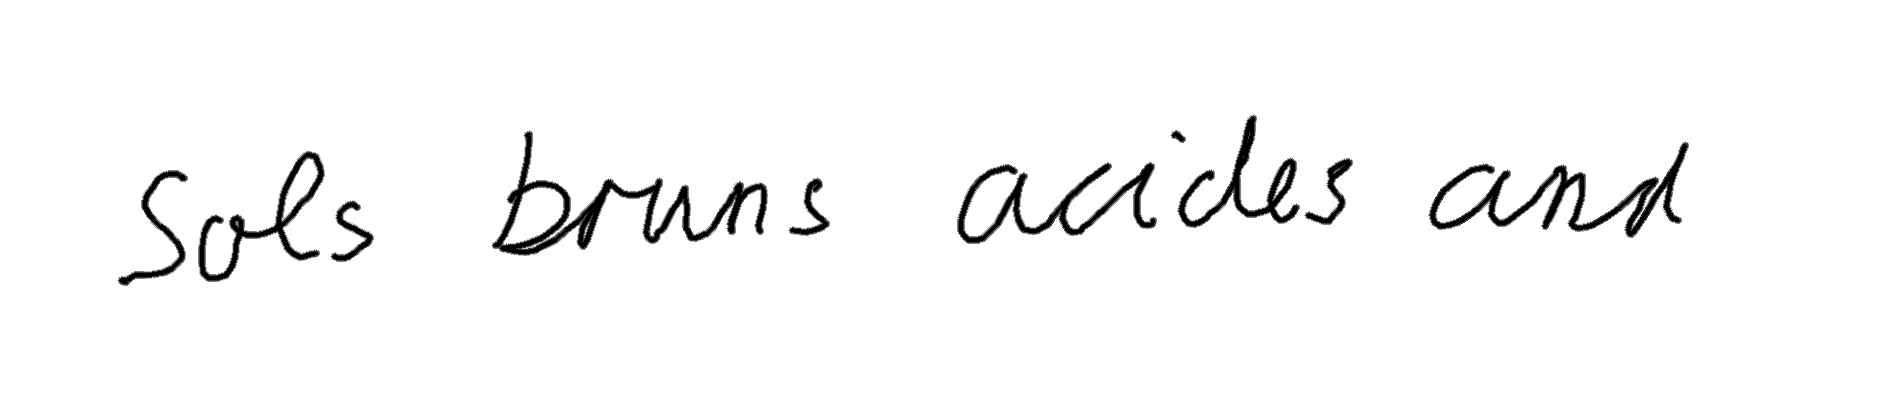 Sols bruns acides and